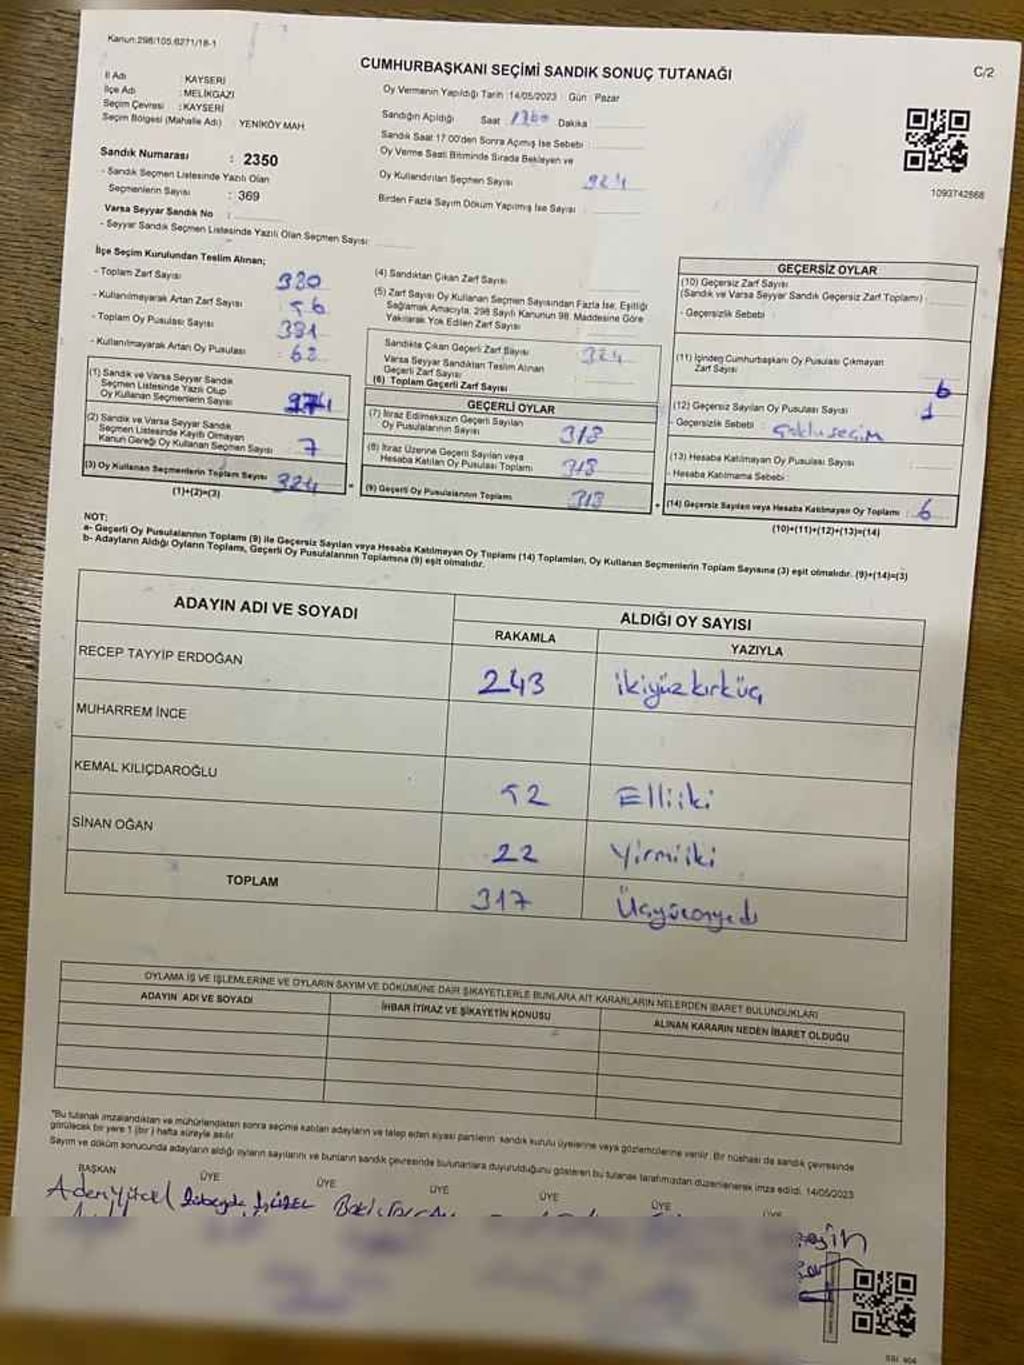 Kanun:298/105.6271/18-1
C/2
CUMHURBAŞKANI SEÇİMİ SANDIK SONUÇ TUTANAĞI
İl Adı : KAYSERİ
İlçe Adı : MELİKGAZİ
Seçim Çevresi : KAYSERİ
Seçim Bölgesi (Mahalle Adı) : YENİKÖY MAH.
Sandık Numarası : 2350
- Sandık Seçmen Listesinde Yazılı Olan
Seçmenlerin Sayısı : 369
Varsa Seyyar Sandık No :
- Seyyar Sandık Seçmen Listesinde Yazılı Olan Seçmen Sayısı:
Oy Vermenin Yapıldığı Tarih :14/05/2023 Gün : Pazar
Sandığın Açıldığı Saat Dakika
Sandık Saat 17:00'den Sonra Açılmış İse Sebebi :
Oy Verme Saati Bitiminde Sırada Bekleyen ve
Oy Kullandırılan Seçmen Sayısı
Birden Fazla Sayım Döküm Yapılmış İse Sayısı :
1093742868
İlçe Seçim Kurulundan Teslim Alınan;
- Toplam Zarf Sayısı : 380
- Kullanılmayarak Artan Zarf Sayısı : 56
- Toplam Oy Pusulası Sayısı : 391
- Kullanılmayarak Artan Oy Pusulası : 68
(1) Sandık ve Varsa Seyyar Sandık
Seçmen Listesinde Yazılı Olup
Oy Kullanan Seçmenlerin Sayısı
(2) Sandık ve Varsa Seyyar Sandık
Seçmen Listesinde Kayıtlı Olmayan
Kanun Gereği Oy Kullanan Seçmen Sayısı : 7
(3) Oy Kullanan Seçmenlerin Toplam Sayısı : 324
(1)+(2)=(3)
(4) Sandıktan Çıkan Zarf Sayısı :
(5) Zarf Sayısı Oy Kullanan Seçmen Sayısından Fazla İse; Eşitliği
Sağlamak Amacıyla, 298 Sayılı Kanunun 98. Maddesine Göre
Yakılarak Yok Edilen Zarf Sayısı :
Sandıkta Çıkan Geçerli Zarf Sayısı : 324
Varsa Seyyar Sandıktan Teslim Alınan
Geçerli Zarf Sayısı :
(6) Toplam Geçerli Zarf Sayısı :
GEÇERLİ OYLAR
(7) İtiraz Edilmeksizin Geçerli Sayılan
Oy Pusulalarının Sayısı : 318
(8) İtiraz Üzerine Geçerli Sayılan veya
Hesaba Katılan Oy Pusulası Toplamı : 318
(9) Geçerli Oy Pusulalarının Toplamı : 318
GEÇERSİZ OYLAR
(10) Geçersiz Zarf Sayısı
(Sandık ve Varsa Seyyar Sandık Geçersiz Zarf Toplamı) :
- Geçersizlik Sebebi :
(11) İçinden Cumhurbaşkanı Oy Pusulası Çıkmayan
Zarf Sayısı :
6
(12) Geçersiz Sayılan Oy Pusulası Sayısı : 1
- Geçersizlik Sebebi : Çoklu seçim
(13) Hesaba Katılmayan Oy Pusulası Sayısı :
- Hesaba Katılmama Sebebi :
(14) Geçersiz Sayılan veya Hesaba Katılmayan Oy Toplamı : 6
(10)+(11)+(12)+(13)=(14)
NOT:
a- Geçerli Oy Pusulalarının Toplamı (9) ile Geçersiz Sayılan veya Hesaba Katılmayan Oy Toplamı (14) Toplamları, Oy Kullanan Seçmenlerin Toplam Sayısına (3) eşit olmalıdır. (9)+(14)=(3)
b- Adayların Aldığı Oyların Toplamı, Geçerli Oy Pusulalarının Toplamına (9) eşit olmalıdır.
ADAYIN ADI VE SOYADI
ALDIĞI OY SAYISI
RAKAMLA
YAZIYLA
RECEP TAYYİP ERDOĞAN 243 ikiyüzkırküç
MUHARREM İNCE
KEMAL KILIÇDAROĞLU 52 Elliiki
SİNAN OĞAN 22 Yirmiiki
TOPLAM 317 Üçyüzonyedi
OYLAMA İŞ VE İŞLEMLERİNE VE OYLARIN SAYIM VE DÖKÜMÜNE DAİR ŞİKAYETLERLE BUNLARA AİT KARARLARIN NELERDEN İBARET BULUNDUKLARI
ADAYIN ADI VE SOYADI
İHBAR İTİRAZ VE ŞİKAYETİN KONUSU
ALINAN KARARIN NEDEN İBARET OLDUĞU
*Bu tutanak imzalandıktan ve mühürlendikten sonra seçime katılan adayların ve talep eden siyasi partilerin sandık kurulu üyelerine veya gözlemcilerine verilir. Bir nüshası da sandık çevresinde
görülecek bir yere 1 (bir) hafta süreyle asılır.
Sayım ve döküm sonucunda adayların aldığı oyların sayılarını ve bunların sandık çevresinde bulunanlara duyurulduğunu gösteren bu tutanak tarafımızdan düzenlenerek imza edildi. 14/05/2023
BAŞKAN ÜYE ÜYE ÜYE ÜYE ÜYE ÜYE